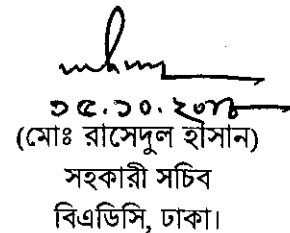 ১৫.১০.২০১৮
(মোঃ রাসেদুল হাসান)
সহকারী সচিব
বিএডিসি, ঢাকা।